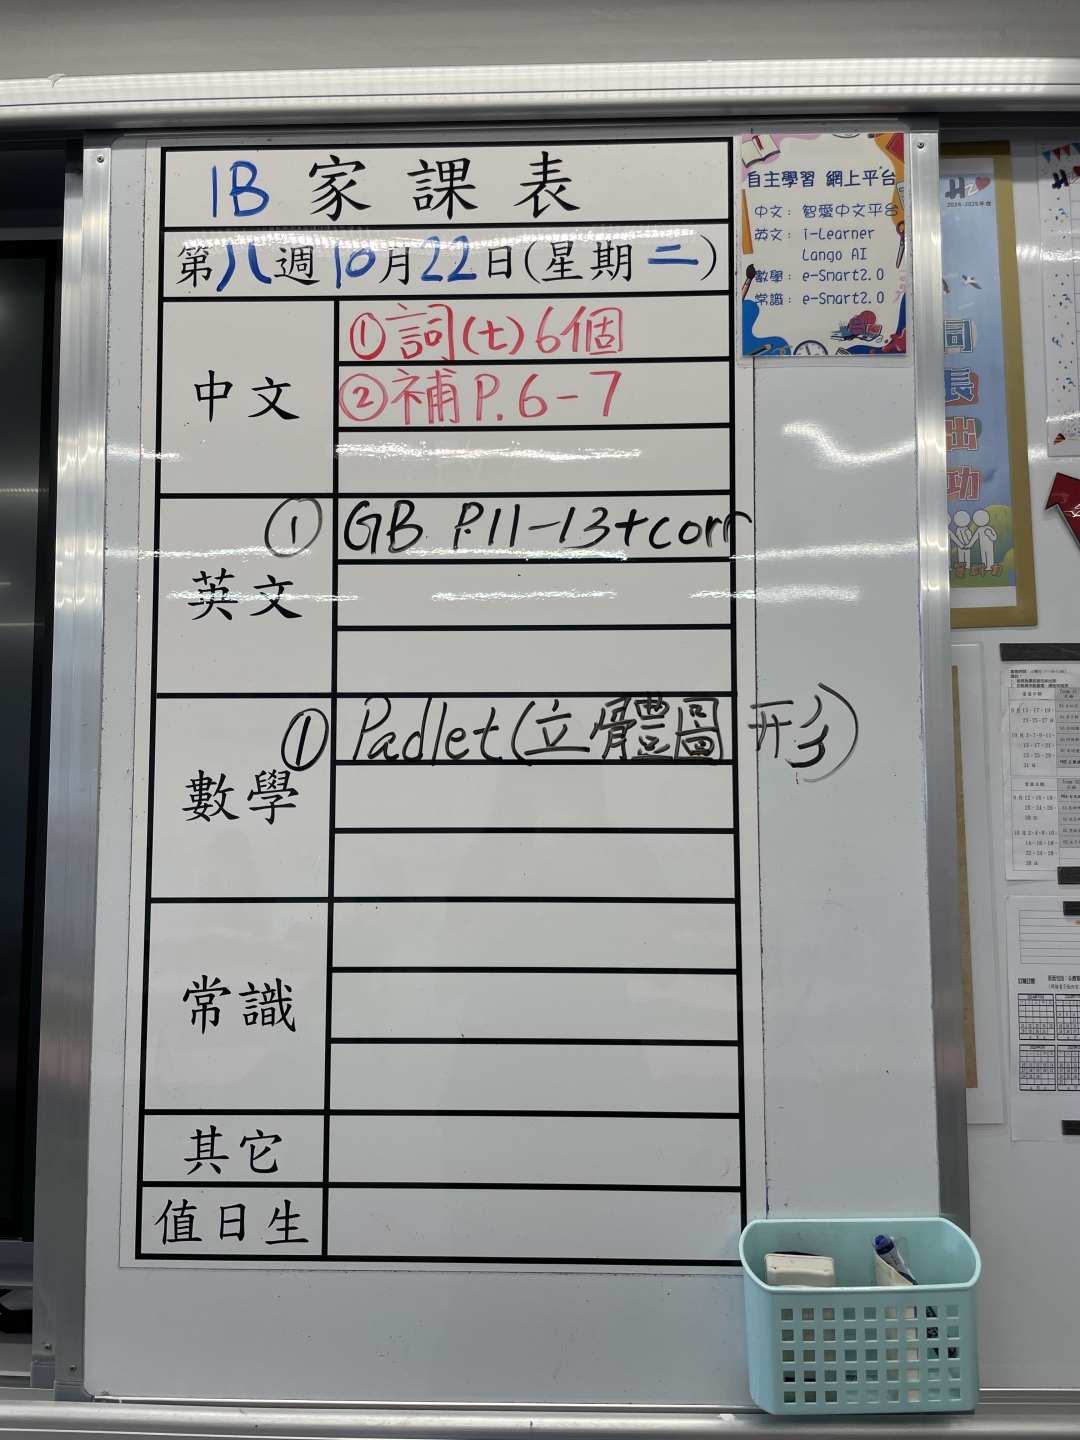 1B 家課表
第八週10月22日(星期二)
中文
①詞(七)6個
②補P.6-7
英文
① GB P.11-13+corr
數學
① Padlet(立體圖形)
常識
其它
值日生
自主學習 網上平台
中文：智愛中文平台
英文：i-Learner
Lango AI
數學：e-Smart2.0
常識：e-Smart2.0
2024-2025年度
同
長
出
功